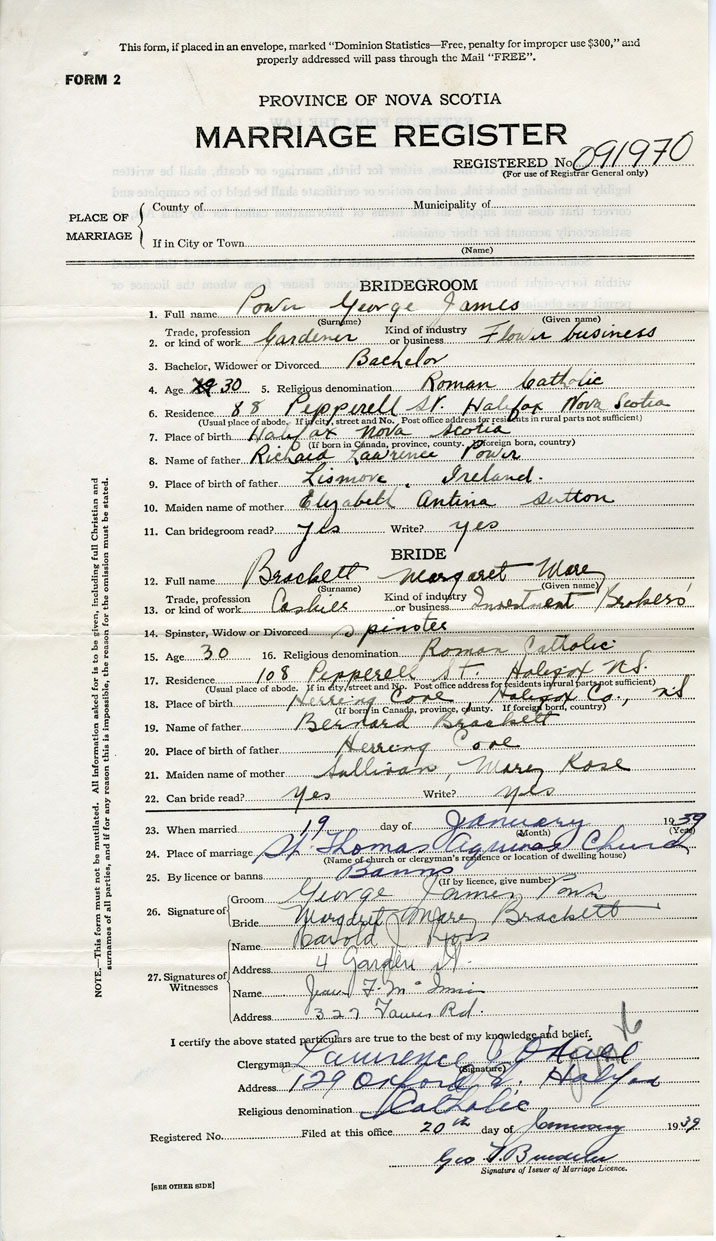 This form, if placed in an envelope, marked "Dominion Statistics—Free, penalty for improper use $300," and
properly addressed will pass through the Mail "FREE".
FORM 2
PROVINCE OF NOVA SCOTIA
MARRIAGE REGISTER
REGISTERED No. 091970
(For use of Registrar General only)
PLACE OF MARRIAGE
County of Municipality of
If in City or Town
(Name)
BRIDEGROOM
1. Full name Power George James
(Surname) (Given name)
2. Trade, profession or kind of work Gardener Kind of industry or business Flower business
3. Bachelor, Widower or Divorced Bachelor
4. Age 30 5. Religious denomination Roman Catholic
6. Residence 88 Pepperell St. Halifax Nova Scotia
(Usual place of abode. If in city, street and No. Post office address for residents in rural parts not sufficient)
7. Place of birth Halifax Nova Scotia
(If born in Canada, province, county. If foreign born, country)
8. Name of father Richard Lawrence Power
9. Place of birth of father Lismore, Ireland.
10. Maiden name of mother Elizabeth Antina Sutton
11. Can bridegroom read? yes Write? yes
BRIDE
12. Full name Brackett Margaret Mary
(Surname) (Given name)
13. Trade, profession or kind of work Cashier Kind of industry or business Investment Brokers
14. Spinster, Widow or Divorced Spinster
15. Age 30 16. Religious denomination Roman Catholic
17. Residence 108 Pepperell St. Halifax N.S.
(Usual place of abode. If in city, street and No. Post office address for residents in rural parts not sufficient)
18. Place of birth Herring Cove Halifax Co., NS
(If born in Canada, province, county. If foreign born, country)
19. Name of father Bernard Brackett
20. Place of birth of father Herring Cove
21. Maiden name of mother Sullivan, Mary Rose
22. Can bride read? Yes Write? Yes
23. When married 19 day of January 1939
(Month) (Year)
24. Place of marriage St. Thomas Aquinas Church
(Name of church or clergyman's residence or location of dwelling house)
25. By licence or banns Banns
(If by licence, give number)
26. Signature of
Groom George James Power
Bride Margaret Mary Brackett
27. Signatures of Witnesses
Name Ross
Address 4 Garden St.
Name Jean F. McInnis
Address 327 Tower Rd.
I certify the above stated particulars are true to the best of my knowledge and belief,
Clergyman Lawrence
(Signature)
Address 129 Oxford St. Halifax
Religious denomination Catholic
Registered No. Filed at this office 20th day of January 1939
Geo
Signature of Issuer of Marriage Licence.
[SEE OTHER SIDE]
NOTE.—This form must not be mutilated. All information asked for is to be given, including full Christian and
surnames of all parties, and if for any reason this is impossible, the reason for the omission must be stated.